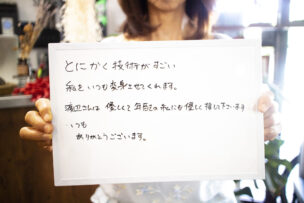 とにかく技術がすごい
私をいつも変身させてくれます。
渡辺さんは 優しくて の私にも優しく接して下さいます
いつも
ありがとうございます。